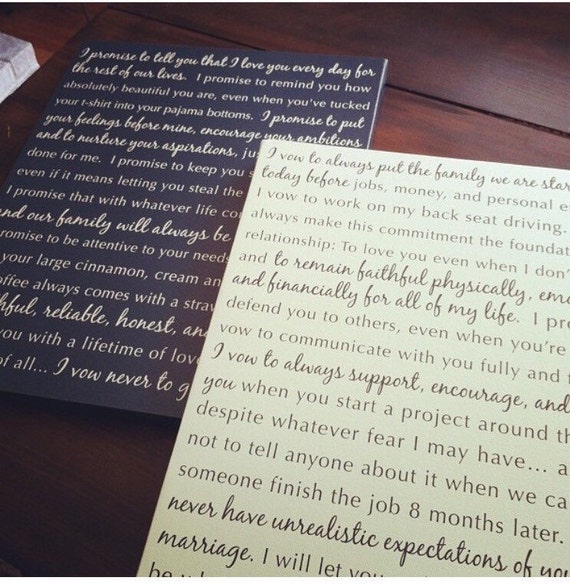 I promise to tell you that I love you every day for
the rest of our lives. I promise to remind you how
absolutely beautiful you are, even when you've tucked
your t-shirt into your pajama bottoms. I promise to put
your feelings before mine, encourage your ambitions
and to nurture your aspirations, ju
done for me. I promise to keep you s
even if it means letting you steal the
I promise that with whatever life co
and our family will always be
promise to be attentive to your need
your large cinnamon, cream an
offee always comes with a straw
hful, reliable, honest, and
you with a lifetime of lov
of all... I vow never to g
I vow to always put the family we are star
today before jobs, money, and personal e
I vow to work on my back seat driving.
always make this commitment the foundat
relationship: To love you even when I don'
and to remain faithful physically, emo
and financially for all of my life. I pr
defend you to others, even when you're
vow to communicate with you fully and
I vow to always support, encourage, and
you when you start a project around th
despite whatever fear I may have... a
not to tell anyone about it when we ca
someone finish the job 8 months later.
never have unrealistic expectations of you
marriage. I will let you